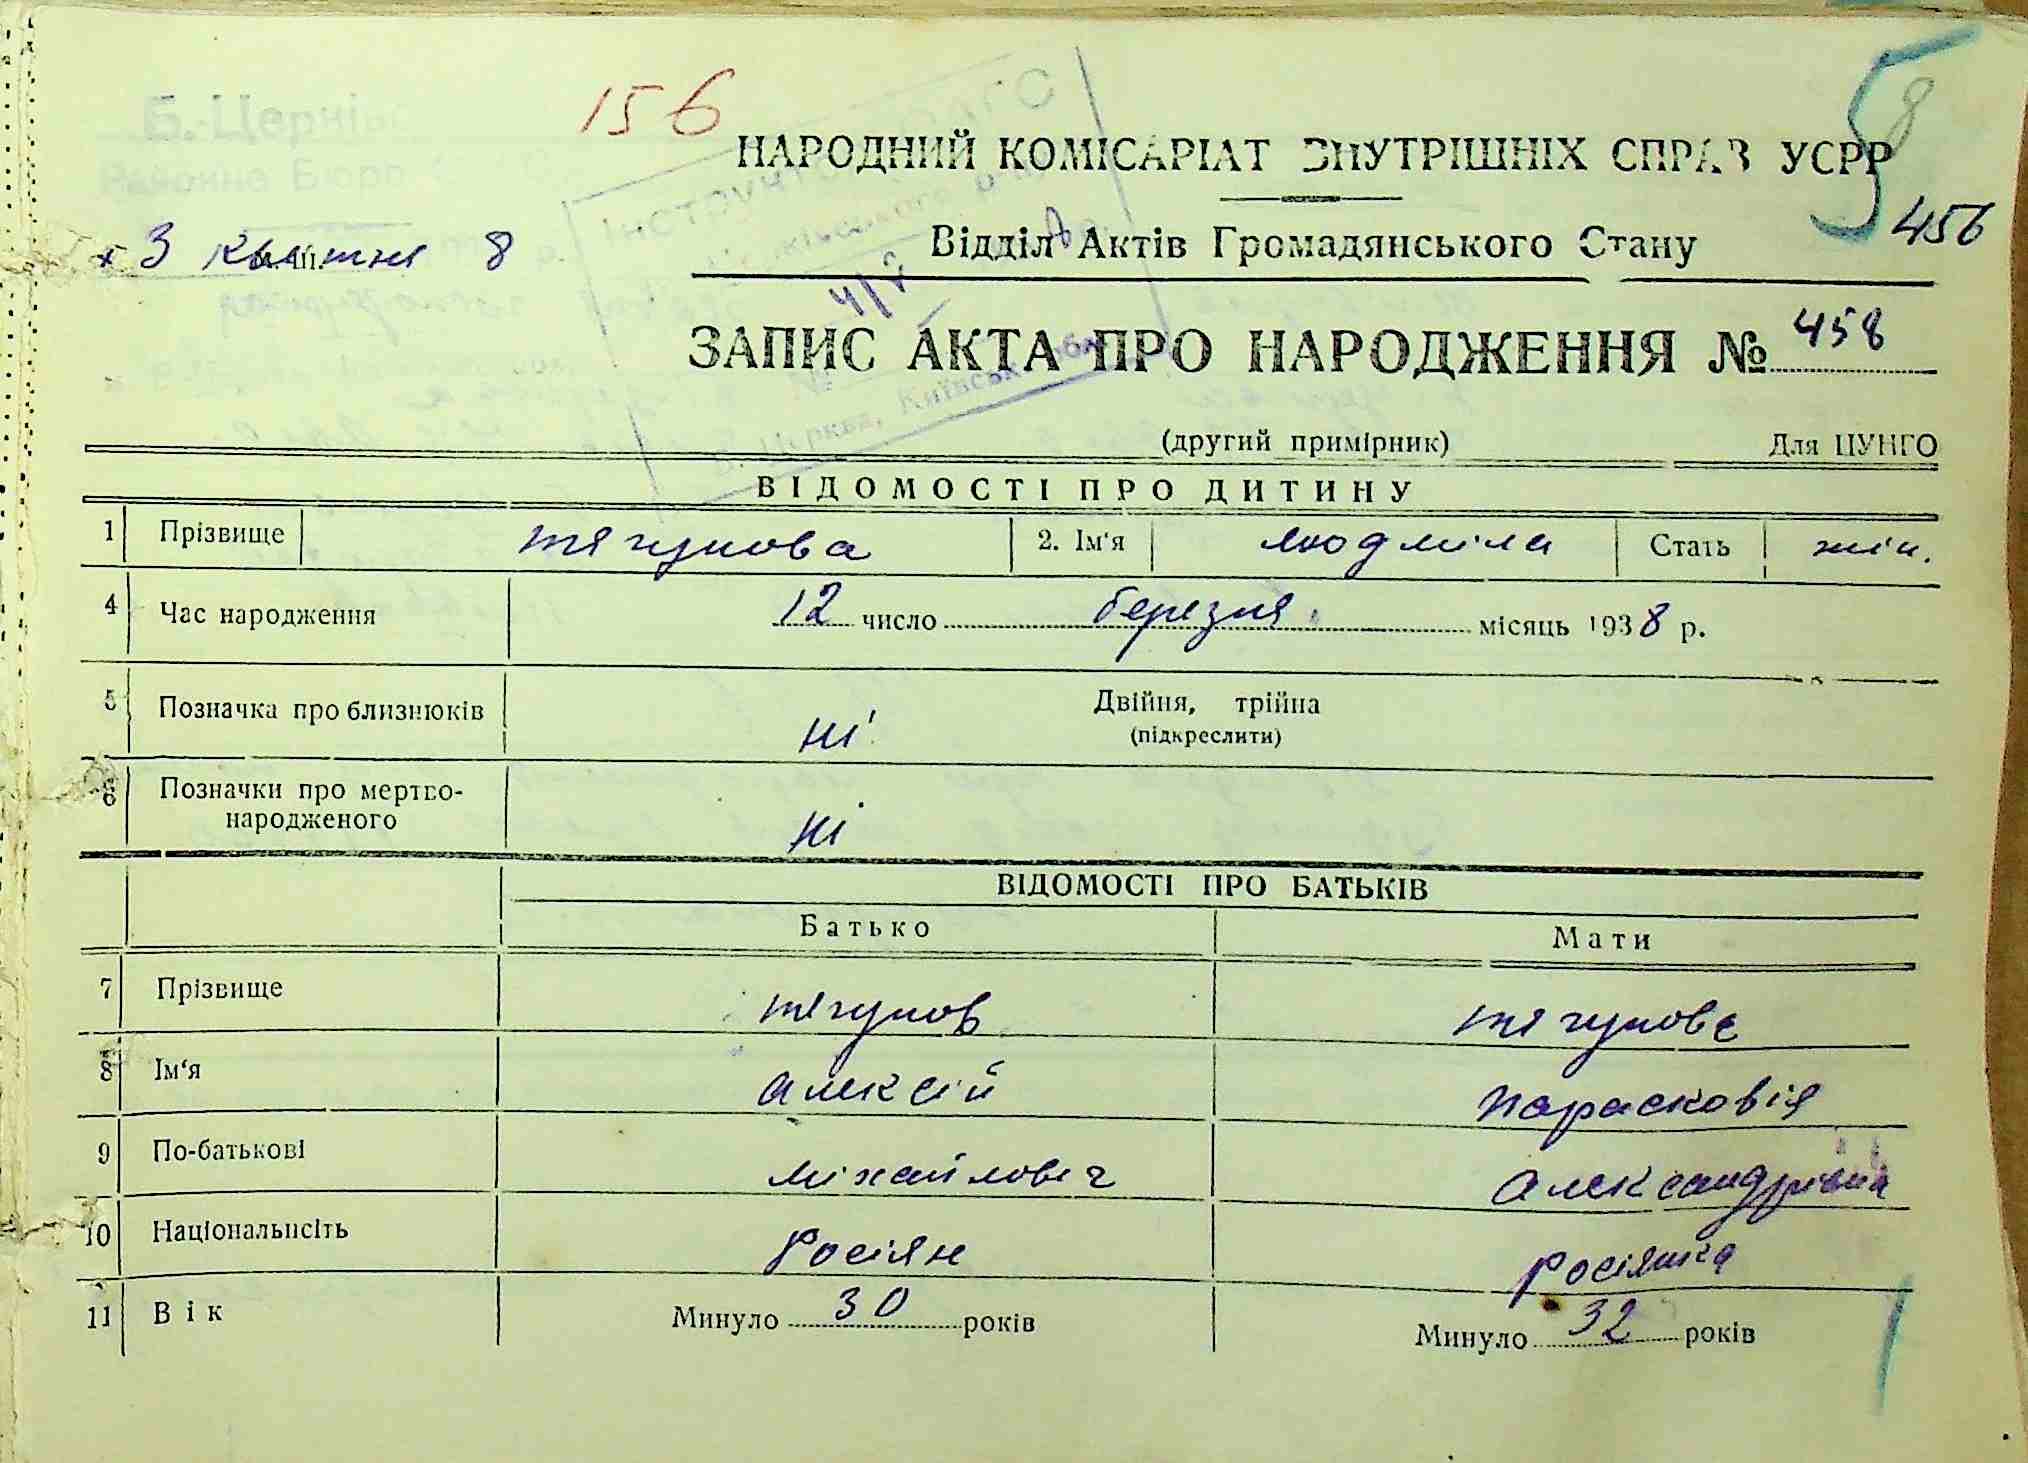 156
58
Б.-Церківс
Районне Бюро
НАРОДНИЙ КОМІСАРІАТ ВНУТРІШНІХ СПРАВ УСРР
456
3 квітня 8
Відділ Актів Громадянського Стану
ЗАПИС АКТА ПРО НАРОДЖЕННЯ № 458
Б. Церква, Київськ. обл.
(другий примірник) Для ЦУНГО
ВІДОМОСТІ ПРО ДИТИНУ
1 Прізвище тягунова 2. Ім'я людміла Стать жін.
4 Час народження 12 число березня місяць 1938 р.
5 Позначка про близнюків ні Двійня, трійна
(підкреслити)
6 Позначки про мертво-
народженого ні
ВІДОМОСТІ ПРО БАТЬКІВ
Батько Мати
7 Прізвище тягунов тягунова
8 Ім'я алексій парасковія
9 По-батькові міхайловіч александрівна
10 Національність росіян росіянка
11 Вік Минуло 30 років Минуло 32 років